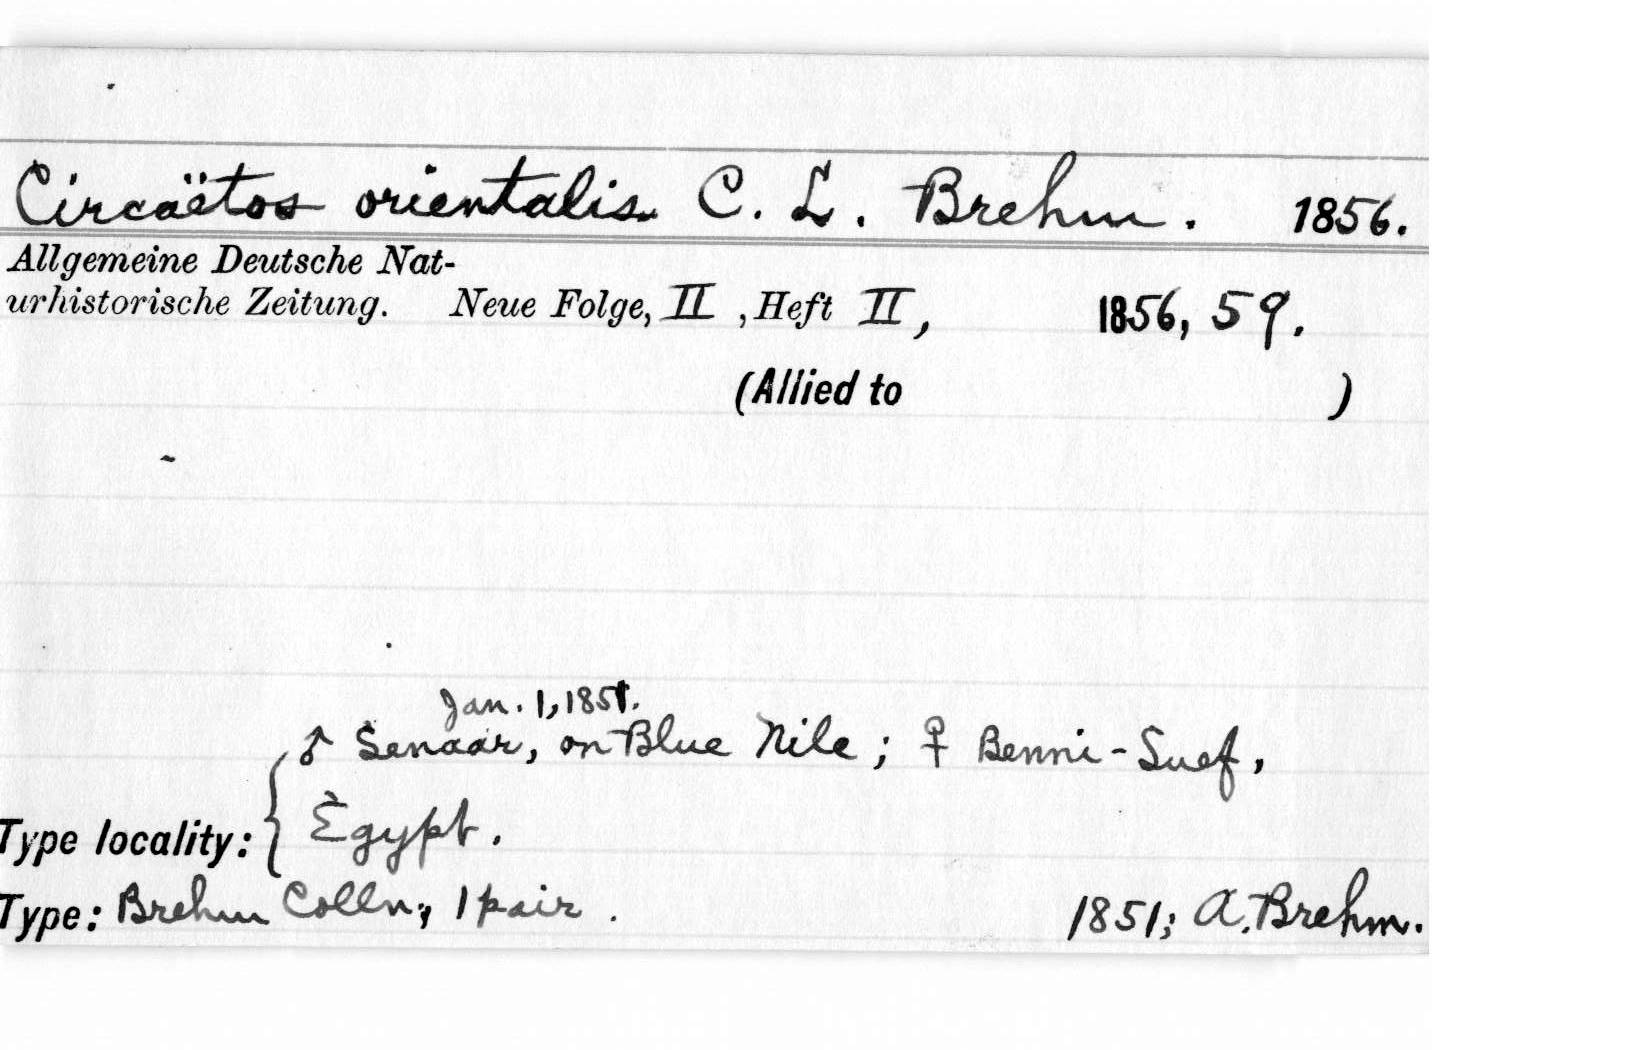 Circaëtos orientalis C. L. Brehm. 1856.
Allgemeine Deutsche Nat-
urhistorische Zeitung. Neue Folge, II , Heft II, 1856, 59.
(Allied to )
Jan. 1, 1851.
♂ Senaar, on Blue Nile; ♀ Benni-Suef,
Type locality: { Egypt.
Type: Brehm Colln; 1 pair. 1851; A. Brehm.